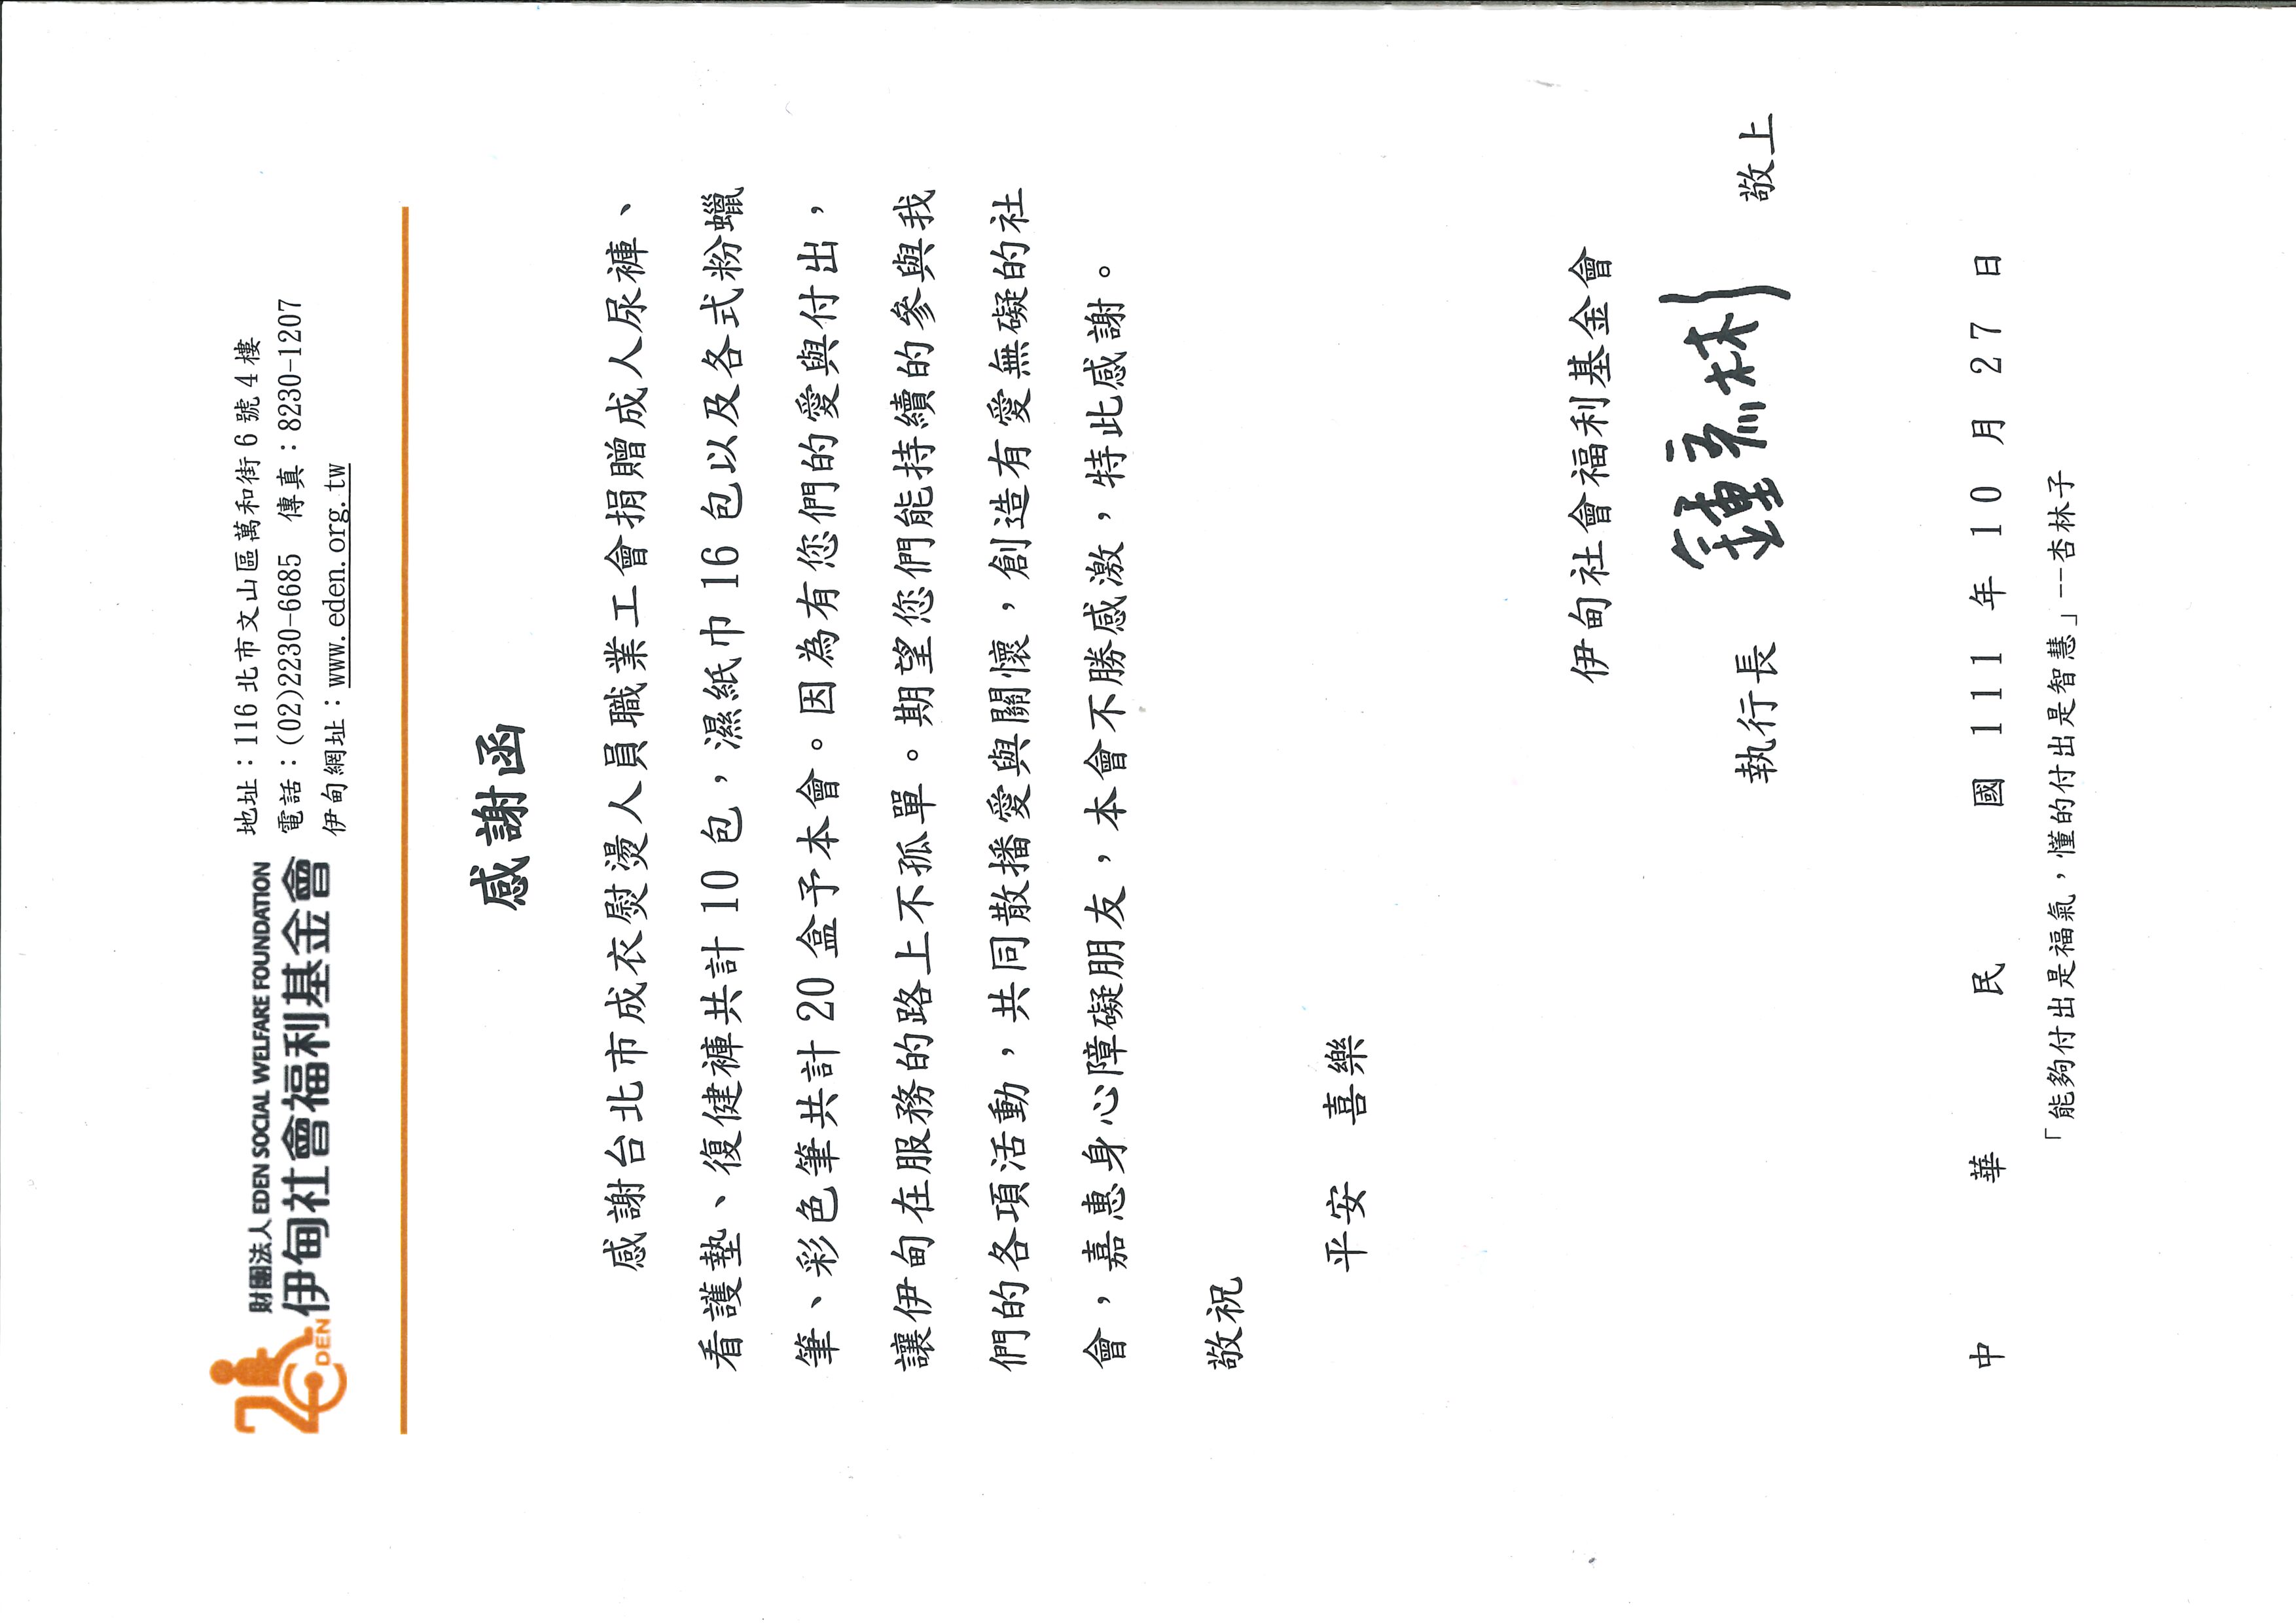 財團法人 EDEN SOCIAL WELFARE FOUNDATION
伊甸社會福利基金會
EDEN
地址：116 北市文山區萬和街 6 號 4 樓
電話：(02)2230-6685 傳真：8230-1207
伊甸網址：www.eden.org.tw
感謝函
感謝台北市成衣熨燙人員職業工會捐贈成人尿褲、
看護墊、復健褲共計 10 包，濕紙巾 16 包以及各式粉蠟
筆、彩色筆共計 20 盒予本會。因為有您們的愛與付出，
讓伊甸在服務的路上不孤單。期望您們能持續的參與我
們的各項活動，共同散播愛與關懷，創造有愛無礙的社
會，嘉惠身心障礙朋友，本會不勝感激，特此感謝。
敬祝
平安 喜樂
伊甸社會福利基金會
執行長 敬上
中 華 民 國 111 年 10 月 27 日
「能夠付出是福氣，懂的付出是智慧」--杏林子